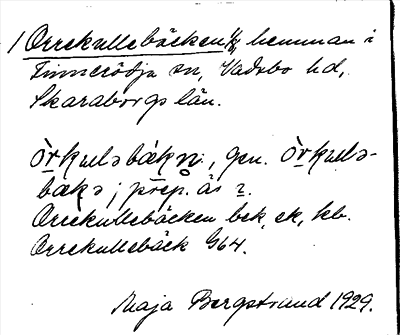 1 Orrekullebäcken 1/4 hemman i
Tinnerödja sn, Vadsbo hd,
Skaraborgs län.
òr̲kulləbák̀n., gen. òr̲kullə-
bákə; prep. ås 2.
Orrekullebäcken bek, ek, kb.
Orrekullebäck G64.
Maja Bergstrand 1929.